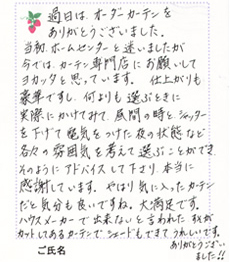 過日は、オーダーカーテンを
ありがとうございました。
当初ホームセンターと迷いましたが
今では、カーテン専門店にお願いして
ヨカッタと思っています。 仕上がりも
豪華ですし、何よりも 選ぶときに
実際にかけておき、昼間の時とシャッター
を下げて電気をつけた夜の状態など
各々の雰囲気を考えて選ぶことができ
そのようにアドバイスして下さり、本当に
感謝しています。 やはり気に入ったカーテン
だと気分も良いですね。大満足です。
ハウスメーカーで出来ないと言われた
カットしてあるカーテンでシェードもできてうれしいです。
ありがとうござい
ました!!
ご氏名